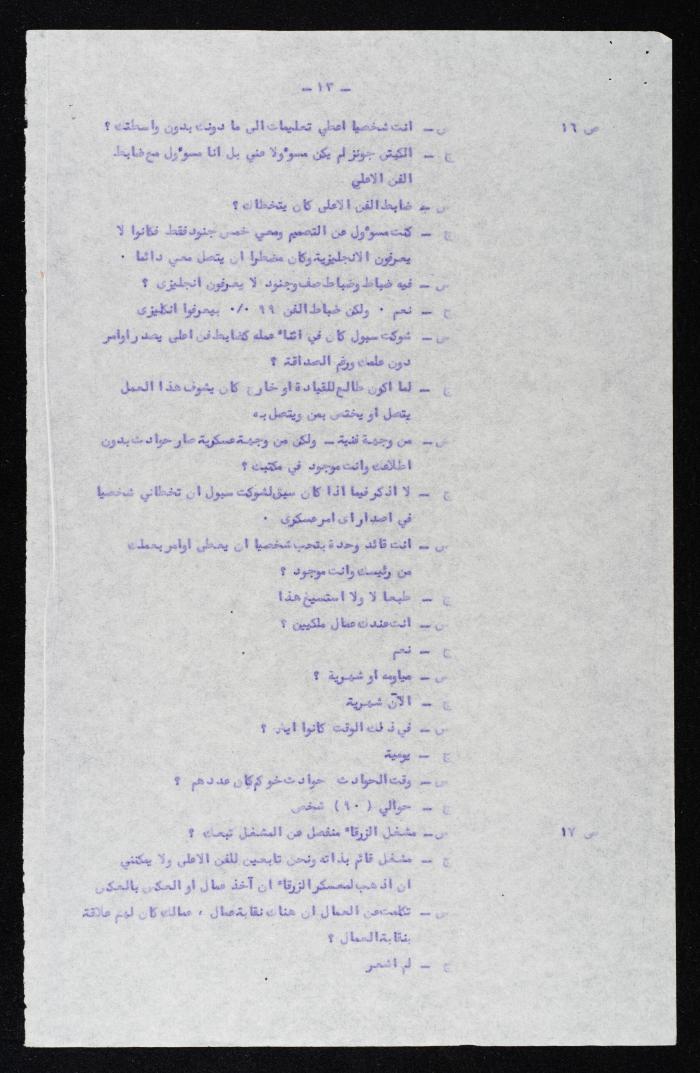 - ١٣ -
ص ١٦
س - انت شخصيا اعطي تعليمات الى ما دونك بدون واسطتك ؟
ج - الكبتن جونز لم يكن مسوءولا عني بل انا مسوءول مع ضابط
الفن الاعلى
س - ضابط الفن الاعلى كان يتخطاك ؟
ج - كنت مسوءول عن التصميم ومعي خمس جنود فقط فكانوا لا
يعرفون الانجليزية وكان مضطرا ان يتصل معي دائما .
س - فيه ضباط وضباط صف وجنود لا يعرفون انجليزى ؟
ج - نعم . ولكن ضباط الفن ٩٩ ٠/٠ بيعرفوا انكليزى
س - شوكت سبول كان في اثناء عمله كضابط فن اعلى يصدر اوامر
دون علمك ورغم الصداقة ؟
ج - لما اكون طالع للقيادة او خارج كان يشوف هذا العمل
يتصل او يختص بمن ويتصل به
س - من وجهة فنية - ولكن من وجهة عسكرية صار حوادث بدون
اطلاعك وانت موجود في مكتبك ؟
ج - لا اذكر فيما اذا كان سبق لشوكت سبول ان تخطاني شخصيا
في اصدار اى امر عسكرى .
س - انت قائد وحدة بتحب شخصيا ان يعطى اوامر بعملك
من رئيسك وانت موجود ؟
ج - طبعا لا ولا استسيغ هذا
س - انت عندك عمال ملكيين ؟
ج - نعم
س - مياومه او شهرية ؟
ج - الآن شهرية
س - في ذلك الوقت كانوا ايش ؟
ج - يومية
س - وقت الحوادث حوادث خو كم كان عددهم ؟
ج - حوالي ( ٩٠ ) شخص
ص ١٧
س - مشغل الزرقاء منفصل عن المشغل تبعك ؟
ج - مشغل قائم بذاته ونحن تابعين للفن الاعلى ولا يمكنني
ان اذهب لمعسكر الزرقاء ان آخذ عمال او العكس بالعكس
س - تكلمت عن العمال ان هناك نقابة عمال ، عمالك كان لهم علاقة
بنقابة العمال ؟
ج - لم اشعر